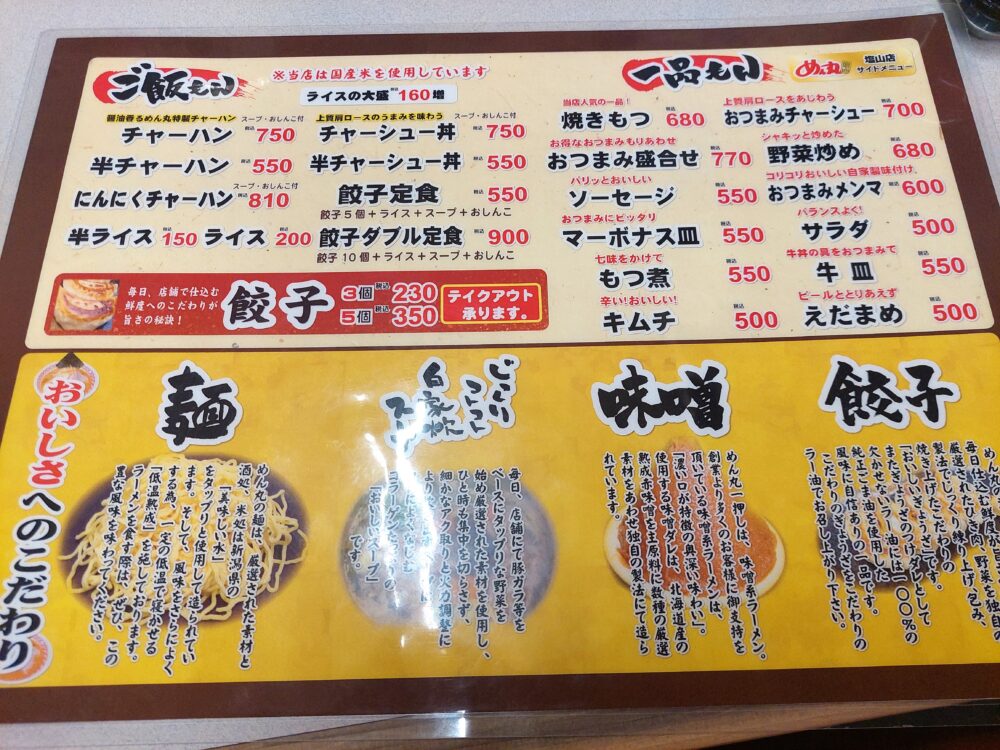 ご飯もん
※当店は国産米を使用しています
ライスの大盛 税込160増
醤油香るめん丸特製チャーハン スープ・おしんこ付
チャーハン 税込750
半チャーハン 税込550
スープ・おしんこ付
にんにくチャーハン 税込810
半ライス 税込150 ライス 税込200
上質肩ロースのうまみを味わう スープ・おしんこ付
チャーシュー丼 税込750
半チャーシュー丼 税込550
餃子定食 税込550
餃子5個+ライス+スープ+おしんこ
餃子ダブル定食 税込900
餃子10個+ライス+スープ+おしんこ
毎日、店舗で仕込む
鮮度へのこだわりが
旨さの秘訣!
餃子
3個 税込230
5個 税込350
テイクアウト
承ります。
一品もん
めん丸
塩山店
サイドメニュー
当店人気の一品!
焼きもつ 税込680
お得なおつまみもりあわせ
おつまみ盛合せ 税込770
パリッとおいしい
ソーセージ 税込550
おつまみにピッタリ
マーボナス皿 税込550
七味をかけて
もつ煮 税込550
辛い!おいしい!
キムチ 税込500
上質肩ロースをあじわう
おつまみチャーシュー 税込700
シャキッと炒めた
野菜炒め 税込680
コリコリおいしい自家製味付け
おつまみメンマ 税込600
バランスよく!
サラダ 税込500
牛丼の具をおつまみで
牛皿 税込550
ビールととりあえず
えだまめ 税込500
おいしさへのこだわり
麺
めん丸の麺は、厳選された素材と
酒処、米処は新潟県の
「美味しい水」
をタップリと使用して造られてい
ます。そして、風味をさらによく
する為、一定の低温で寝かせる
「低温熟成」を施しております。
ラーメンを食す際は、ぜひ、この
豊な風味を味わってください。
じっくり
コトコト
自家炊
毎日、店舗にて豚ガラ等を
ベースにタップリな野菜を
始め厳選された素材を使用し、
ひと時も集中を切らさず、
細かなアク取りと火力調整に
「おいしいスープ」
です。
味噌
めん丸一押しは、味噌系ラーメン。
創業より多くのお客様に御支持を
頂いている味噌系ラーメンは、
「濃い口が特徴の奥深い味わい」。
使用する味噌ダレは、北海道産の
熟成赤味噌を主原料に数種の厳選
素材をあわせ独自の製法にて造ら
れています。
餃子
めん丸の餃子は、野菜を
毎日仕込む鮮度が旨さ
厳選されたひき肉、
製法でじっくり練り上げ包み、
焼き上げたこだわりの
「おいしいぎょうざ」です。
またぎょうざのつけダレとして
欠かせないラー油には一〇〇%の
純正ごま油を使用した
風味に自信ありの一品です。
こだわりのぎょうざをこだわりの
ラー油でお召し上がり下さい。